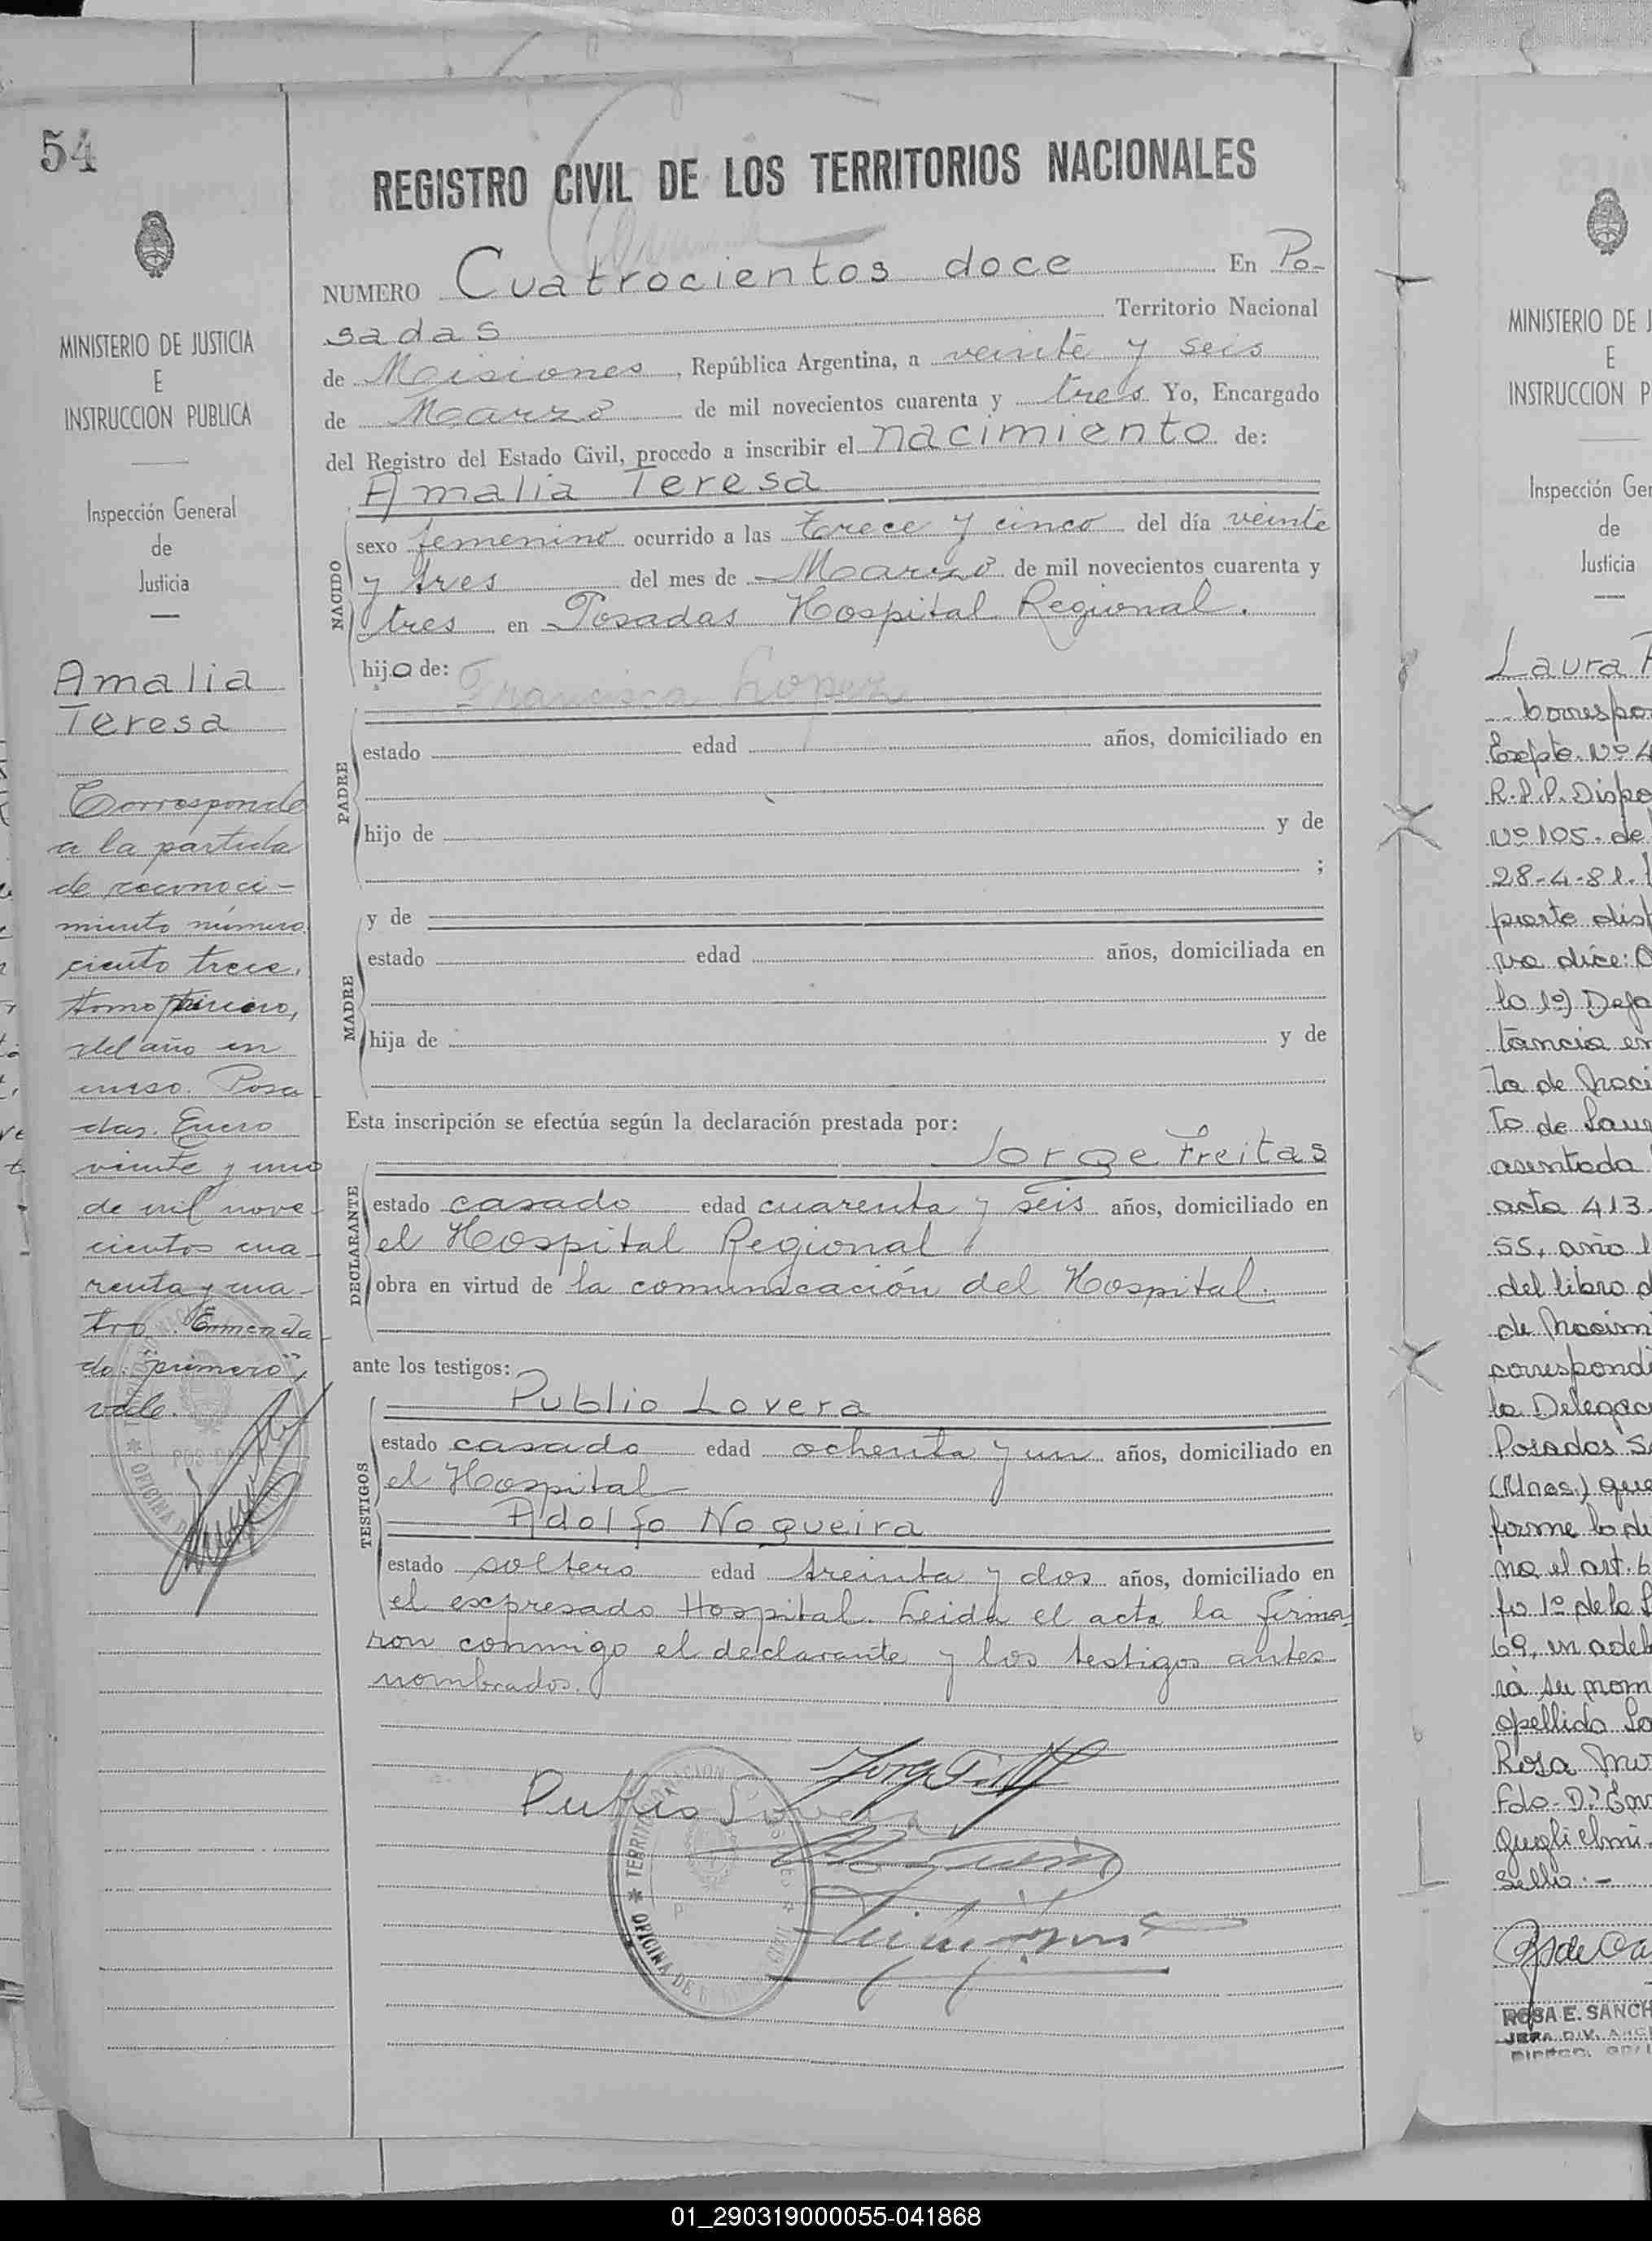 54
MINISTERIO DE JUSTICIA
E
INSTRUCCION PUBLICA
Inspección General
de
Justicia
Amalia
Teresa
Corresponde
a la partida
de reconoci-
miento número
ciento trece,
tomo primero,
del año en
curso. Posa
das. Enero
veinte y uno
de mil nove-
cientos cua-
renta y cua-
tro. Enmenda-
do: "primero",
vale.
REGISTRO CIVIL DE LOS TERRITORIOS NACIONALES
NUMERO Cuatrocientos doce En Po-
sadas Territorio Nacional
de Misiones, República Argentina, a veinte y seis
de Marzo de mil novecientos cuarenta y tres Yo, Encargado
del Registro del Estado Civil, procedo a inscribir el nacimiento de:
Amalia Teresa
NACIDO
sexo femenino ocurrido a las trece y cinco del día veinte
y tres del mes de Marzo de mil novecientos cuarenta y
tres en Posadas Hospital Regional.
hija de: Francisca Lopez
PADRE
estado edad años, domiciliado en
hijo de y de
;
MADRE
y de
estado edad años, domiciliada en
hija de y de
Esta inscripción se efectúa según la declaración prestada por:
Jorge Freitas
DECLARANTE
estado casado edad cuarenta y seis años, domiciliado en
el Hospital Regional
obra en virtud de la comunicación del Hospital.
ante los testigos:
Publio Lovera
TESTIGOS
estado casado edad ochenta y un años, domiciliado en
el Hospital
Adolfo Nogueira
estado soltero edad treinta y dos años, domiciliado en
el expresado Hospital. Leida el acta la firma-
ron conmigo el declarante y los testigos antes
nombrados.
Publio Lovera
OFICINA DE
MINISTERIO DE J
E
INSTRUCCION P
Inspección Gen
de
Justicia
Laura
Correspo
Expte. Nº 4
R.P.P. Dispo
Nº 105. de
28-4-81.
parte disp
va dice:
lo 1º) Deja
tancia en
ta de Naci
to de Lau
asentada
acta 413.
55, año 1
del libro d
de Nacim
correspondi
la Delegac
Posadas S
(Mnes.) que
forme lo di
na el art. 6
fo 1º de la
69, en adel
rá su nom
apellido
Rosa
Fdo. D. En
Guglielmi.
Sello.-
ROSA E. SANCH
JEFA DIV.
01_290319000055-041868